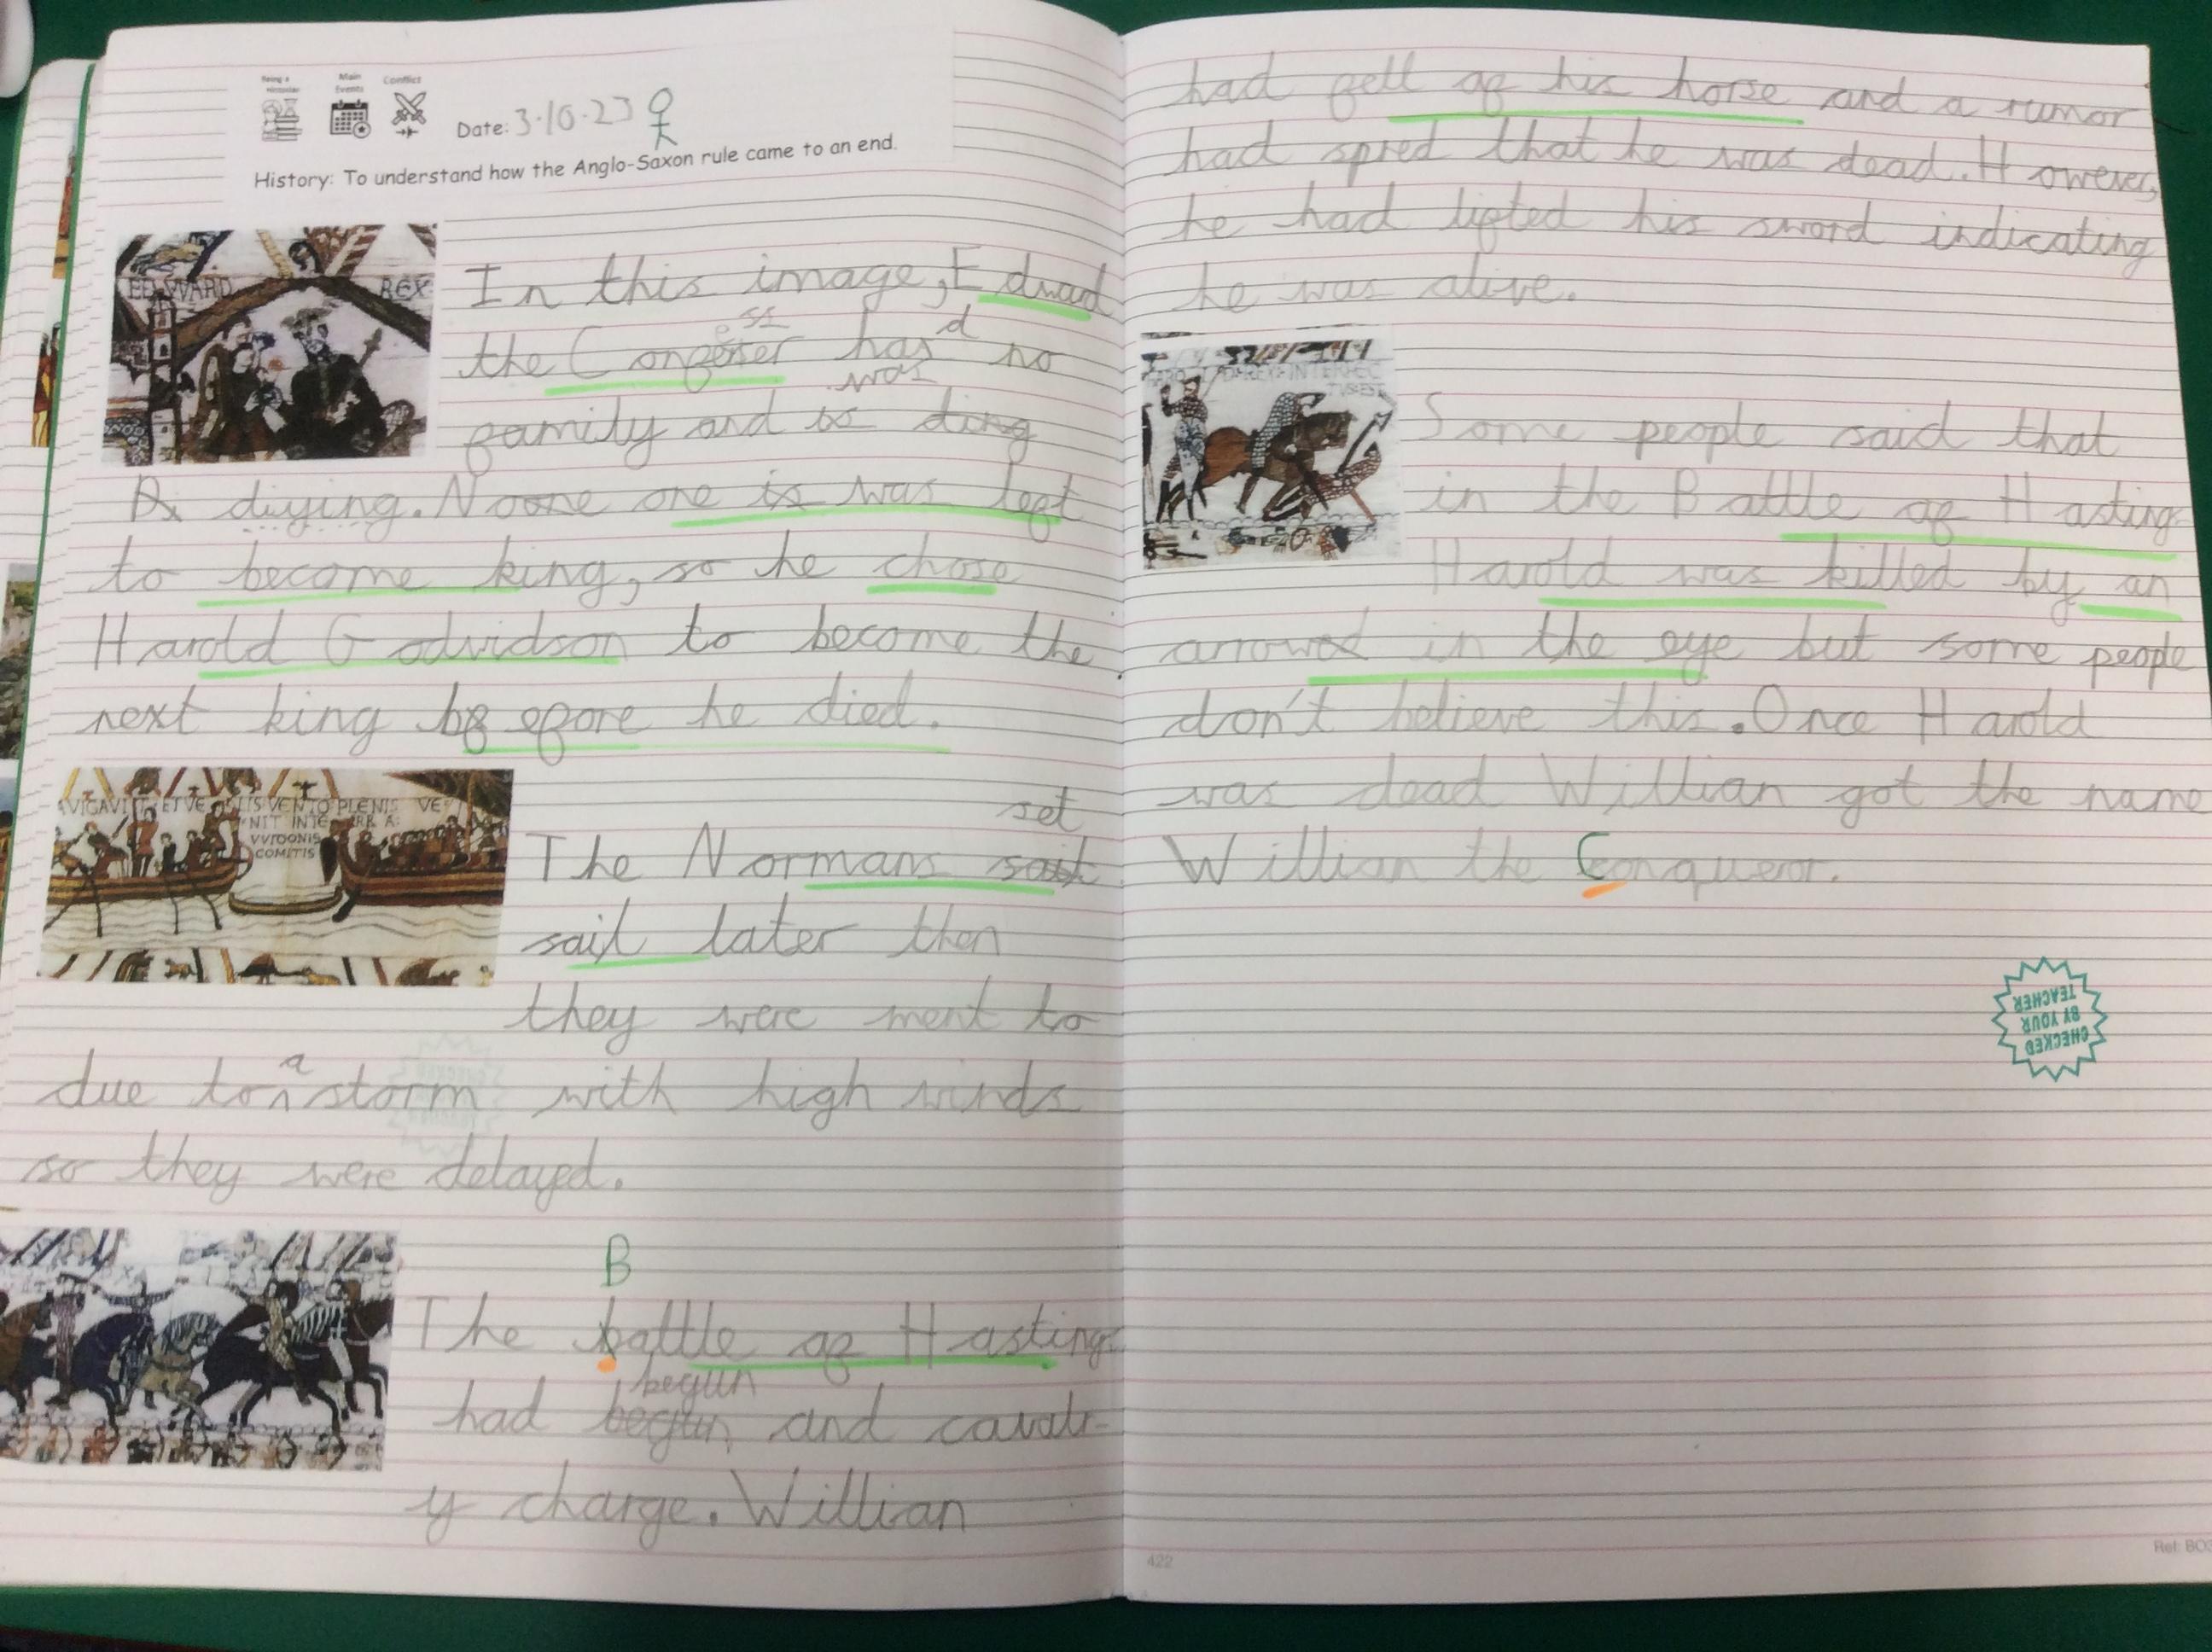 Being a Historian
Main Events
Conflict
Date: 3.10.23
History: To understand how the Anglo-Saxon rule came to an end.
EDWARD REX
In this image, Edward
ss d
the Confeser has no
was
family and is ding
diying. Noone one is was left
to become king, so he chose
Harold Godwidson to become the
next king before he died.
AVIGAVIT: ET VE LIS VENTO PLENIS VE
NIT INTE RRA
VVIDONIS
COMITIS
set
The Normans sait
sail later then
they were ment to
a
due to storm with high winds
so they were delayed.
B
The battle of Hastings
begun
had begun and cavalr-
y charge. Willian
had fell of his horse and a rumor
had spred that he was dead. However,
he had lifted his sword indicating
he was alive.
INTERFEC
TVS EST
Some people said that
in the Battle of Hastings
Harold was killed by an
arrowed in the eye but some people
don't believe this. Once Harold
was dead Willian got the name
Willian the Conqueror.
CHECKED
BY YOUR
TEACHER
422